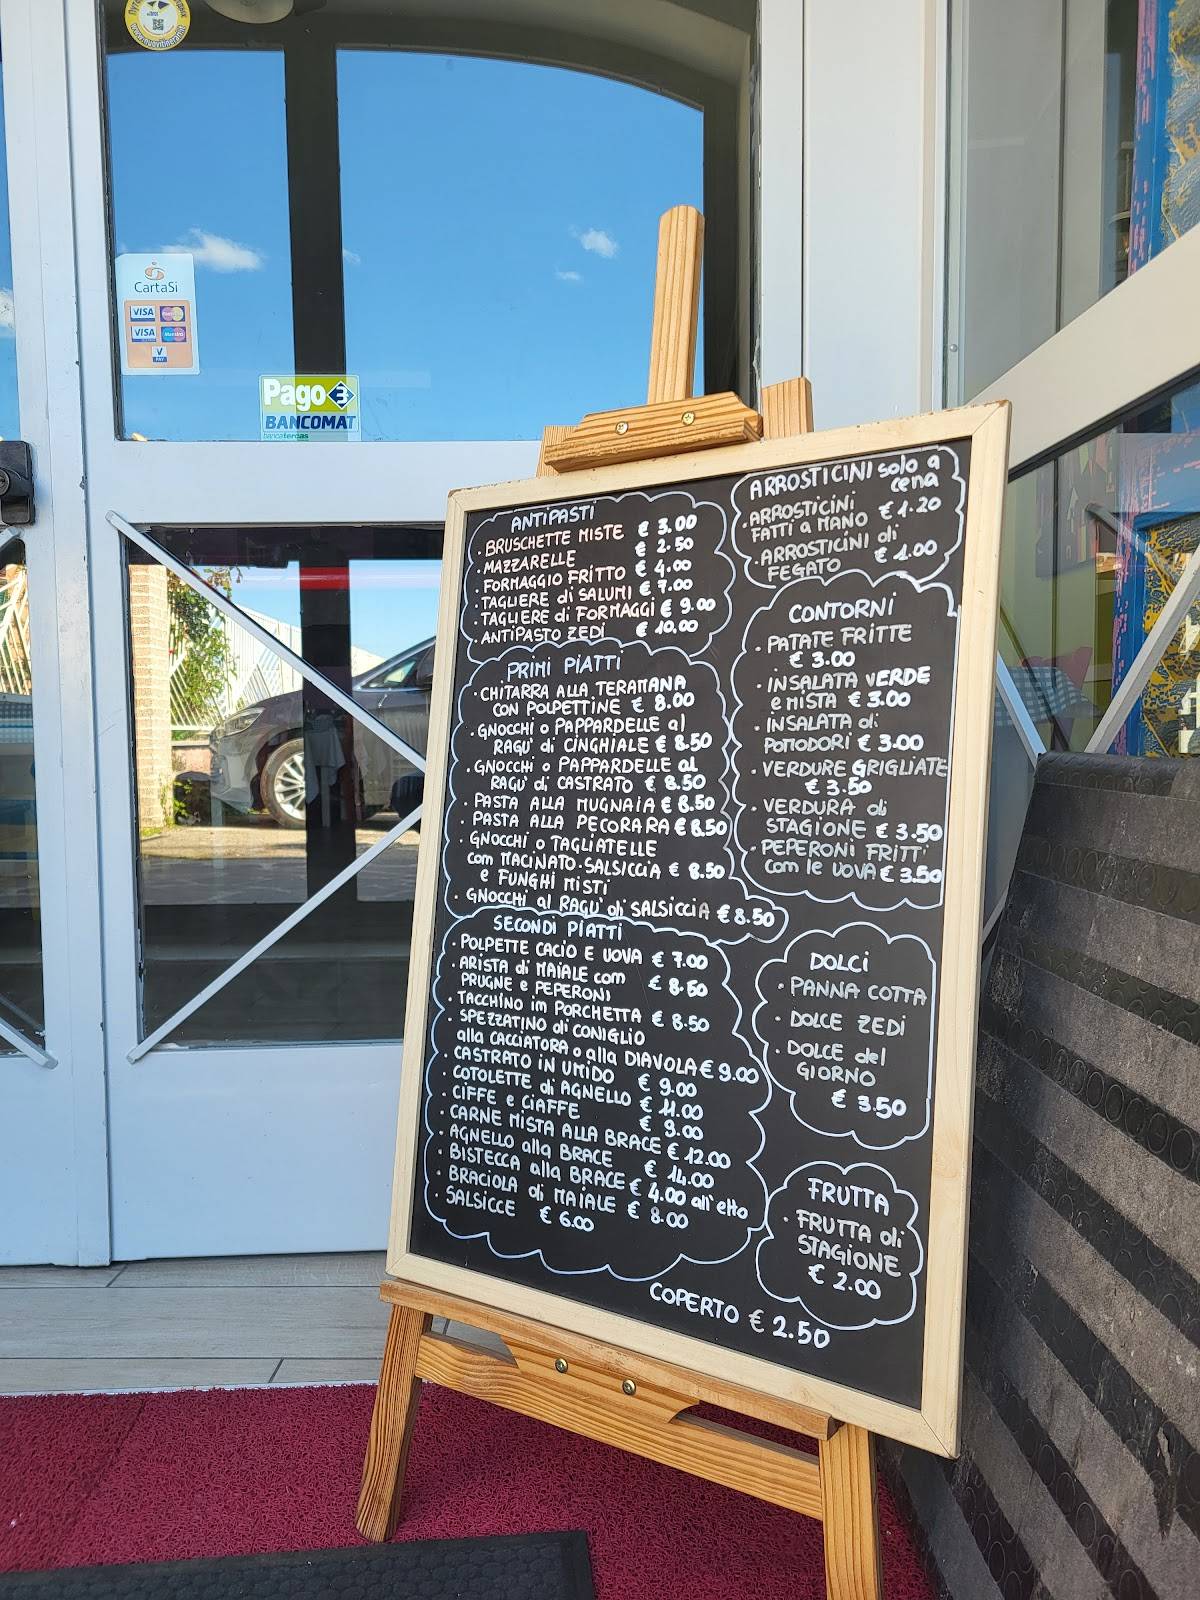 CartaSi
VISA
VISA
Maestro
V PAY
Pago
BANCOMAT
bancatercas
ANTIPASTI
. BRUSCHETTE MISTE € 3.00
. MAZZARELLE € 2.50
. FORMAGGIO FRITTO € 4.00
. TAGLIERE di SALUMI € 7.00
. TAGLIERE di FORMAGGI € 9.00
. ANTIPASTO ZEDI € 10.00
PRIMI PIATTI
. CHITARRA ALLA TERAMANA
CON POLPETTINE € 8.00
. GNOCCHI o PAPPARDELLE al
RAGU' di CINGHIALE € 8.50
. GNOCCHI o PAPPARDELLE al
RAGU' di CASTRATO € 8.50
. PASTA ALLA MUGNAIA € 8.50
. PASTA ALLA PECORARA € 8.50
. GNOCCHI o TAGLIATELLE
com MACINATO. SALSICCIA € 8.50
e FUNGHI MISTI
. GNOCCHI al RAGU' di SALSICCIA € 8.50
SECONDI PIATTI
. POLPETTE CACIO E UOVA € 7.00
. ARISTA di MAIALE com
PRUGNE e PEPERONI € 8.50
. TACCHINO im PORCHETTA € 8.50
. SPEZZATINO di CONIGLIO
alla CACCIATORA o alla DIAVOLA € 9.00
. CASTRATO IN UMIDO € 9.00
. COTOLETTE di AGNELLO € 11.00
. CIFFE e CIAFFE € 9.00
. CARNE MISTA ALLA BRACE € 12.00
. AGNELLO alla BRACE € 14.00
. BISTECCA alla BRACE € 4.00 all'etto
. BRACIOLA di MAIALE € 8.00
. SALSICCE € 6.00
ARROSTICINI solo a
cena
. ARROSTICINI
FATTI a MANO € 1.20
. ARROSTICINI di
FEGATO € 1.00
CONTORNI
. PATATE FRITTE
€ 3.00
. INSALATA VERDE
e MISTA € 3.00
. INSALATA di
POMODORI € 3.00
. VERDURE GRIGLIATE
€ 3.50
. VERDURA di
STAGIONE € 3.50
. PEPERONI FRITTI
com le UOVA € 3.50
DOLCI
. PANNA COTTA
. DOLCE ZEDI
. DOLCE del
GIORNO
€ 3.50
FRUTTA
. FRUTTA di
STAGIONE
€ 2.00
COPERTO € 2.50